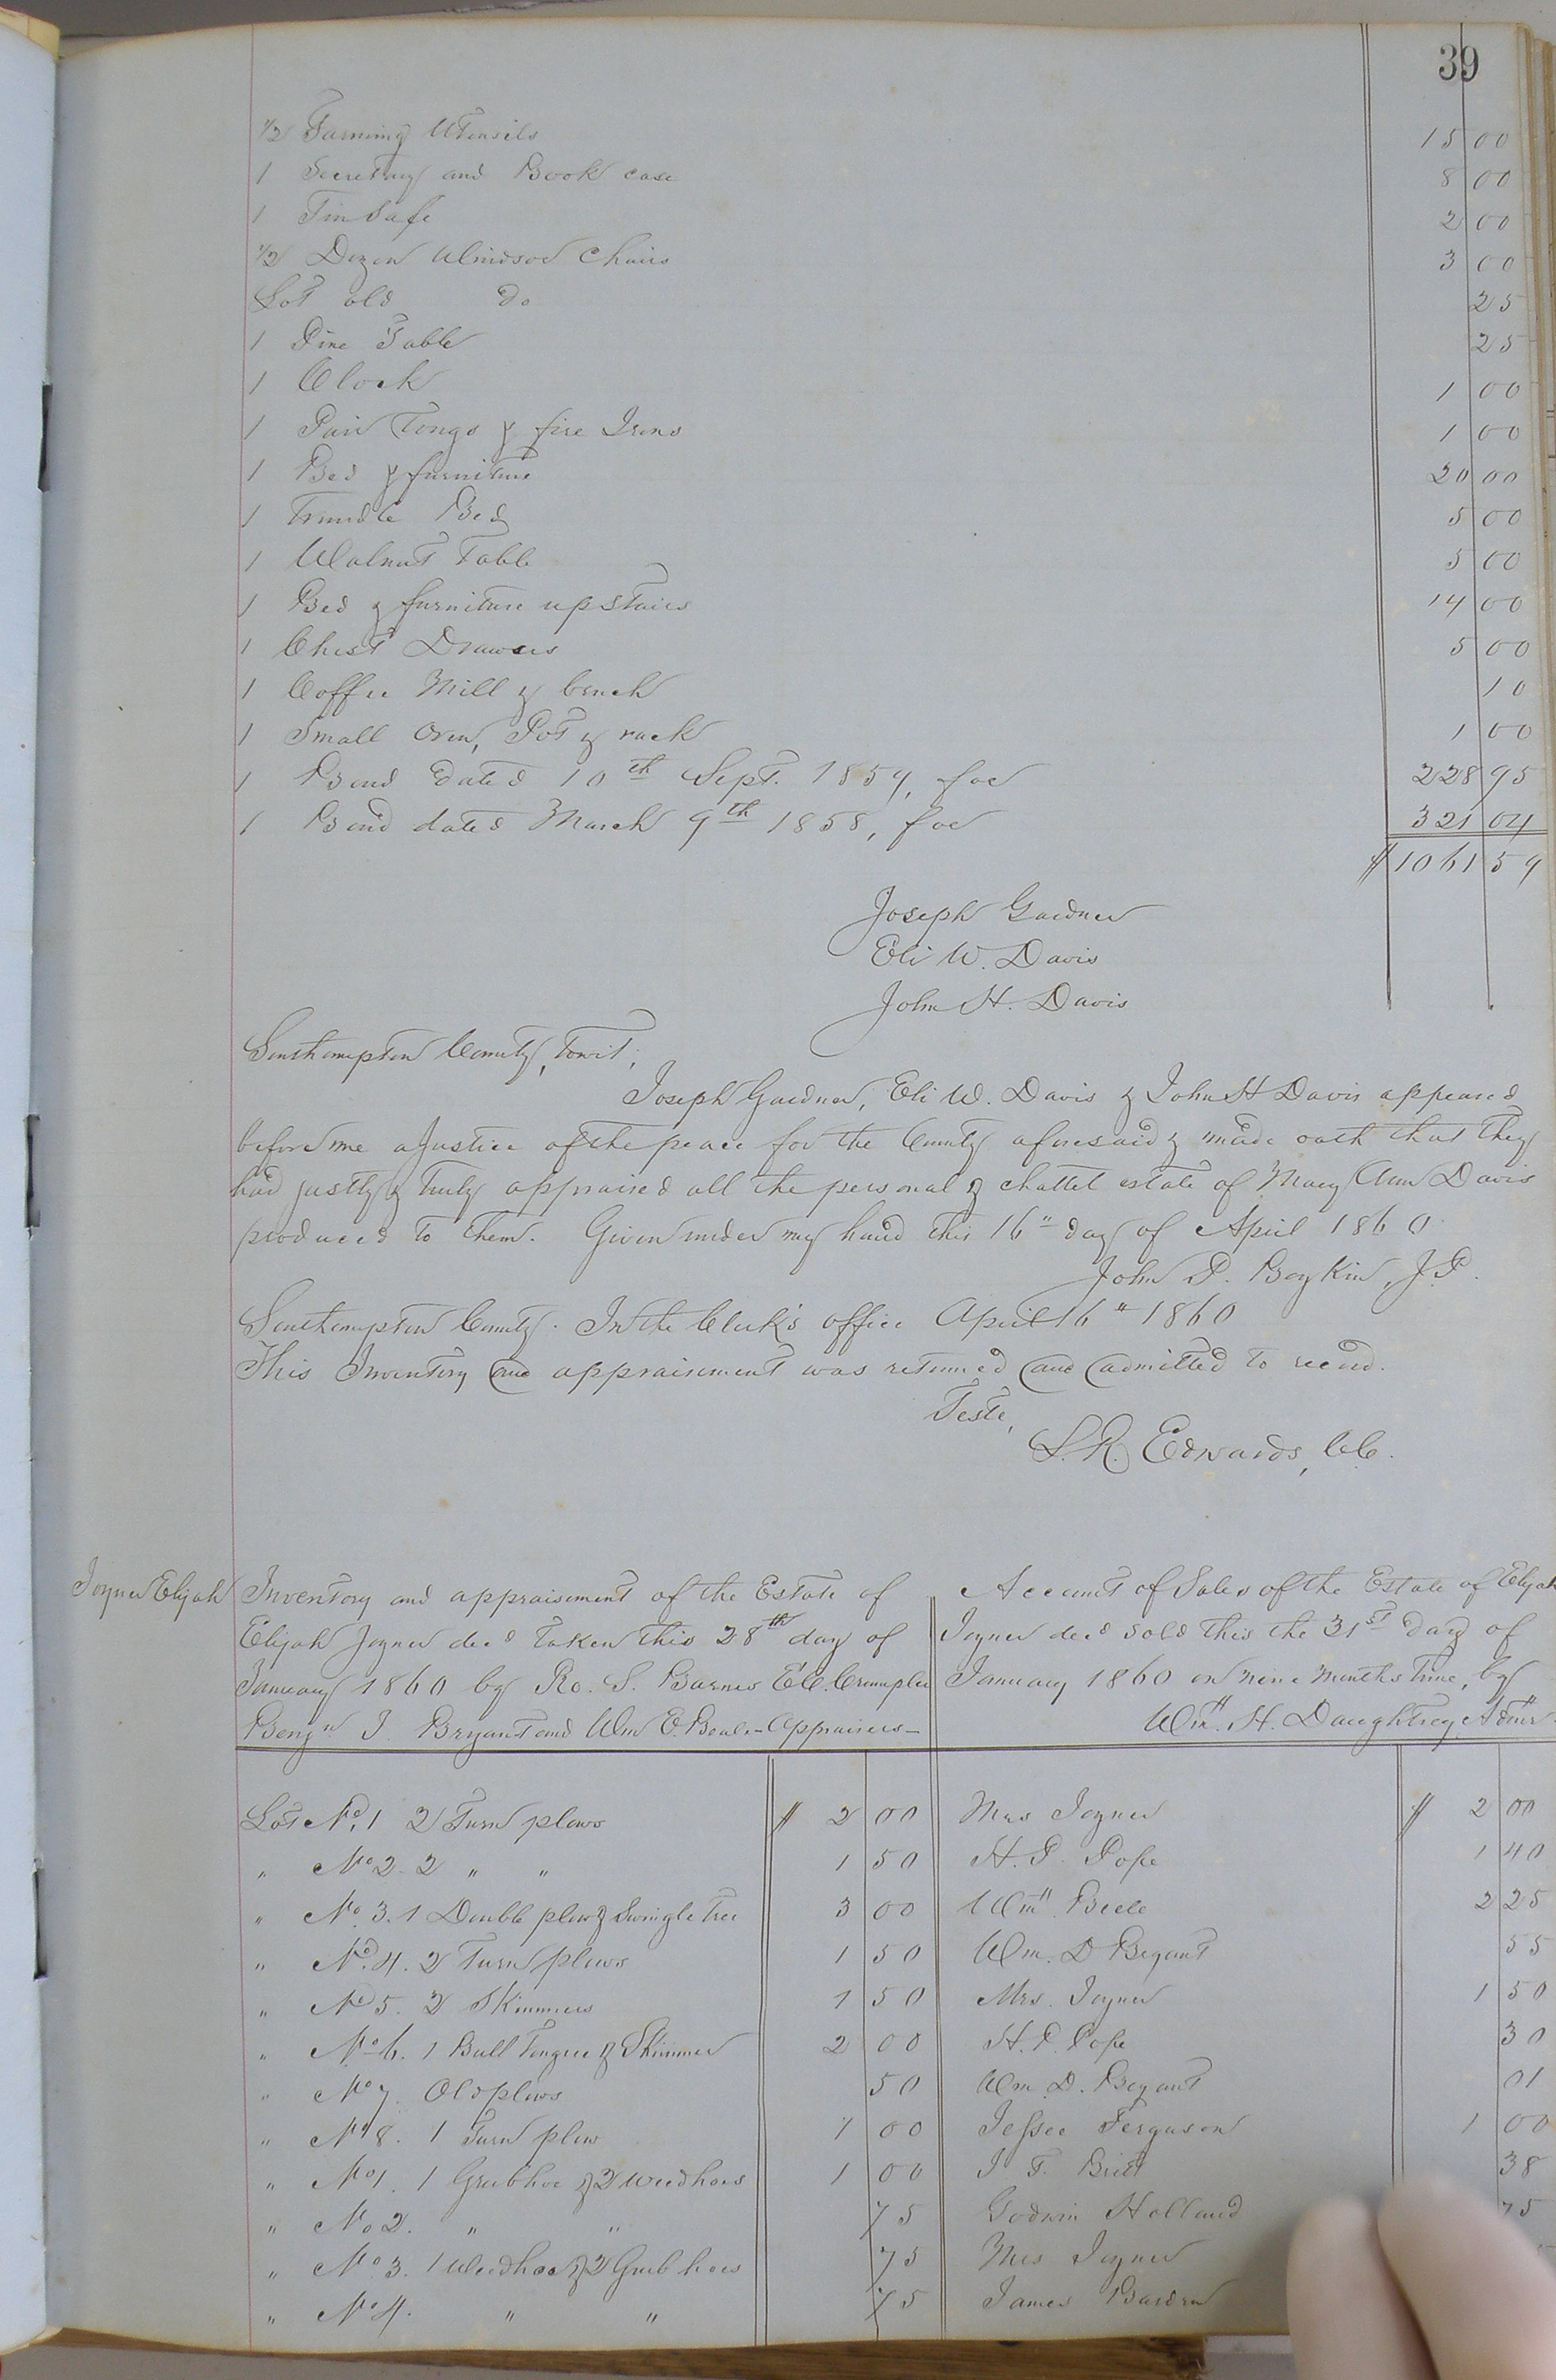 39
1/2 Farming Utensils 15 00
1 Secretary and Book case 8 00
1 Tin Safe 2 00
1/2 Dozen Windsor Chairs 3 00
Lot old do 25
1 Pine Table 25
1 Clock 1 00
1 Pair Tongs & fire Irons 1 00
1 Bed & furniture 20 00
1 Trundle Bed 5 00
1 Walnut Table 5 00
1 Bed & furniture upstairs 14 00
1 Chest Drawers 5 00
1 Coffee Mill & bench 10
1 Small Oven, Pot & rack 1 00
1 Bond dated 10th Sept. 1859, for 228 95
1 Bond dated March 9th 1858, for 321 04
$1061 59
Joseph Gardner
Eli W. Davis
John H. Davis
Southampton County, towit;
Joseph Gardner, Eli W. Davis & John H Davis appeared
before me a Justice of the peace for the County aforesaid & made oath that they
had justly & truly appraised all the personal & chattel estate of Mary Ann Davis
produced to them. Given under my hand this 16" day of April 1860
John D. Boykin, J.P.
Southampton County. In the Clerk's office April 16" 1860
This Inventory and appraisement was returned and admitted to record.
Teste,
L.R. Edwards, CC.
Joyner Elijah
Inventory and appraisement of the Estate of
Elijah Joyner decd taken this 28th day of
January 1860 by Ro. S. Barnes E.C. Crumpler
Benjn J Bryant and Wm E. Beale - Appraisers -
Account of Sales of the Estate of Elijah
Joyner decd sold this the 31st day of
January 1860 on nine months time, by
Wm. H. Daughtrey, Admr
Lot No. 1 2 Turn plows $ 2 00 Mrs Joyner $ 2 00
" No 2. 2 " " 1 50 H. P. Pope 1 40
" No. 3. 1 Double plow & Swingle Tree 3 00 Wm Beele 2 25
" No. 4. 2 Turn plows 1 50 Wm. D Bryant 55
" No 5. 2 Skimmers 1 50 Mrs. Joyner 1 50
" No 6. 1 Bull Tongue & Skimmer 2 00 H. P. Pope 30
" No 7. Old plows 50 Wm. D. Bryant 01
" No 8. 1 Turn plow 1 00 Jessee Ferguson 1 00
" No 1. 1 Grubhoe & 2 weedhoes 1 00 J T. Britt 38
" No 2. " " 75 Godwin Holland 75
" No 3. 1 Weedhoe & 2 Grub hoes 75 Mrs Joyner
" No 4. " " 75 James Barden